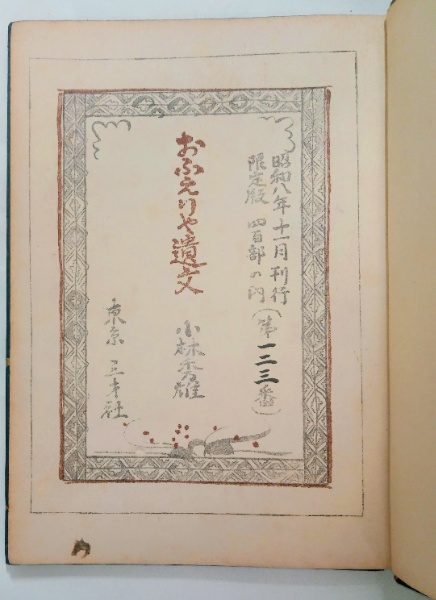 昭和八年十一月刊行
限定版 四百部の内(第一二三番)
おふえりや遺文
小林秀雄
東京 三才社